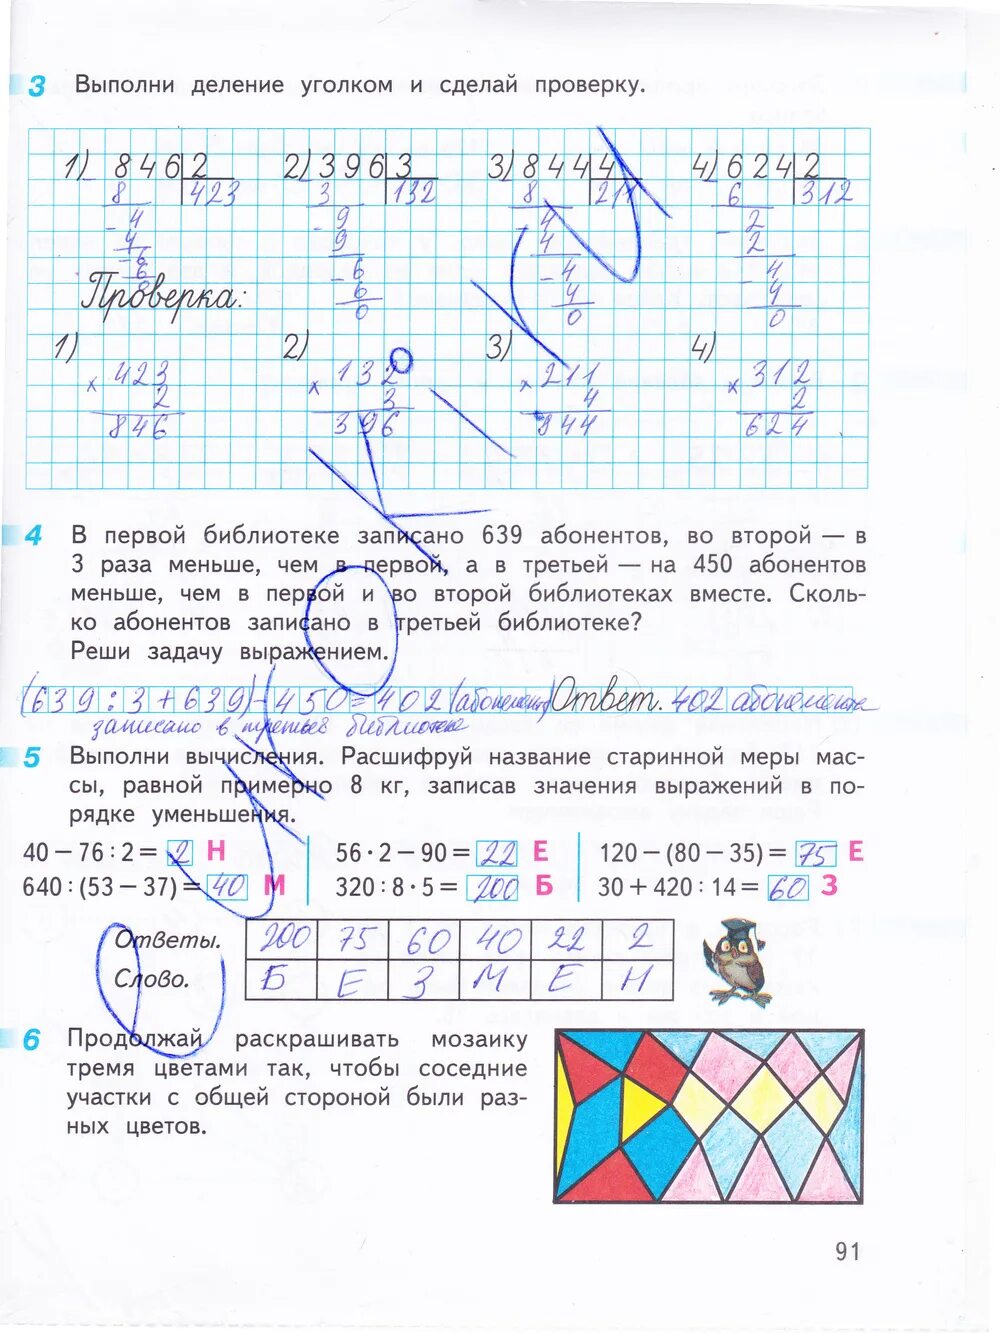 3 Выполни деление уголком и сделай проверку.
1) 846 2 2) 396 3 3) 844 4 4) 624 2
8 423 3 132 8 211 6 312
- 4 - 9 - 4 - 2
4 9 4 2
- 6 - 6 - 4 - 4
6 6 4 4
0 0 0 0
Проверка:
1) 2) 3) 4)
× 423 × 132 × 211 × 312
2 3 4 2
846 396 844 624
4 В первой библиотеке записано 639 абонентов, во второй — в
3 раза меньше, чем в первой, а в третьей — на 450 абонентов
меньше, чем в первой и во второй библиотеках вместе. Сколь-
ко абонентов записано в третьей библиотеке?
Реши задачу выражением.
(639 : 3 + 639) - 450 = 402 (абонента) Ответ. 402 абонента
записано в третьей библиотеке
5 Выполни вычисления. Расшифруй название старинной меры мас-
сы, равной примерно 8 кг, записав значения выражений в по-
рядке уменьшения.
40 – 76 : 2 = 2 Н 56 · 2 – 90 = 22 Е 120 – (80 – 35) = 75 Е
640 : (53 – 37) = 40 М 320 : 8 · 5 = 200 Б 30 + 420 : 14 = 60 З
Ответы. 200 75 60 40 22 2
Слово. Б Е З М Е Н
6 Продолжай раскрашивать мозаику
тремя цветами так, чтобы соседние
участки с общей стороной были раз-
ных цветов.
91